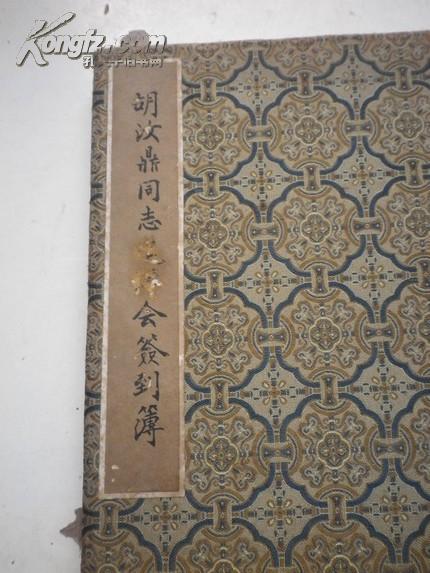 Kongfz.com
孔夫子旧书网
胡汝鼎同志追悼会簽到簿